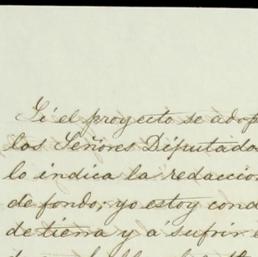 Si el proyecto se adop
los Señores Diputado
lo indica la redaccion
de fondo; yo estoy cond
de tierra y á sufrir e